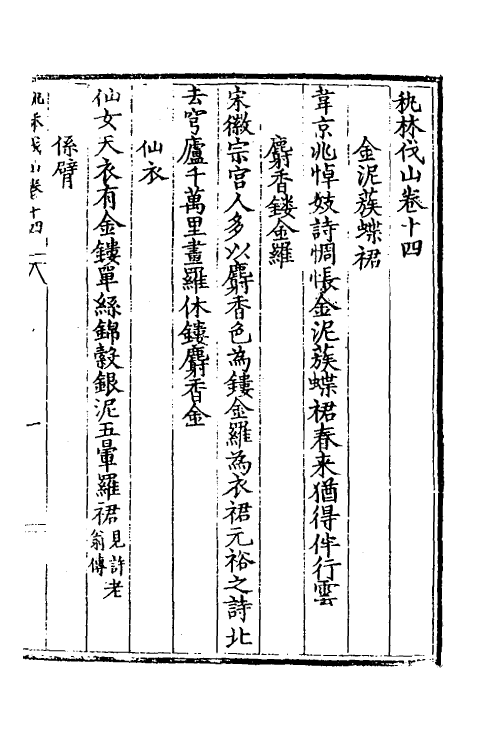 秇林伐山卷十四
金泥蔟蝶裙
韋京兆悼妓詩惆悵金泥蔟蝶裙春来猶得伴行雲
麝香鏤金羅
宋徽宗宫人多以麝香色為鏤金羅為衣裙元裕之詩北
去穹廬千萬里畫羅休鏤麝香金
仙衣
仙女天衣有金鏤單絲錦縠銀泥五暈羅裙見許老
翁傳
係臂
林伐山卷十四
一